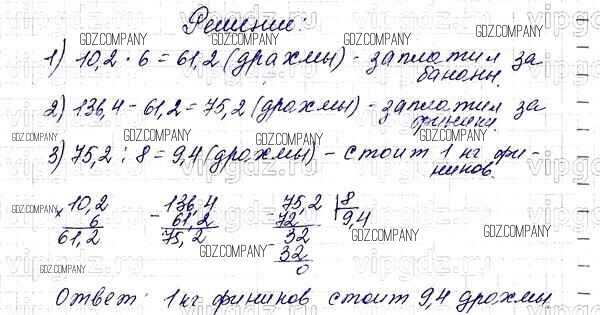 Решение:
1) 10,2 · 6 = 61,2 (драхмы) - заплатил за
бананы.
2) 136,4 - 61,2 = 75,2 (драхмы) - заплатил за
финики.
3) 75,2 : 8 = 9,4 (драхмы) - стоит 1 кг фи-
ников.
× 10,2 - 136,4 - 75,2 | 8
6 61,2 72 9,4
61,2 75,2 32
- 32
0
Ответ: 1 кг фиников стоит 9,4 драхмы
GDZ.COMPANY
GDZ.COMPANY
GDZ.COMPANY
GDZ.COMPANY
GDZ.COMPANY
GDZ.COMPANY
GDZ.COMPANY
GDZ.COMPANY
GDZ.COMPANY
GDZ.COMPANY
GDZ.COMPANY
vipgdz.ru
vipgdz.ru
vipgdz.ru
vipgdz.ru